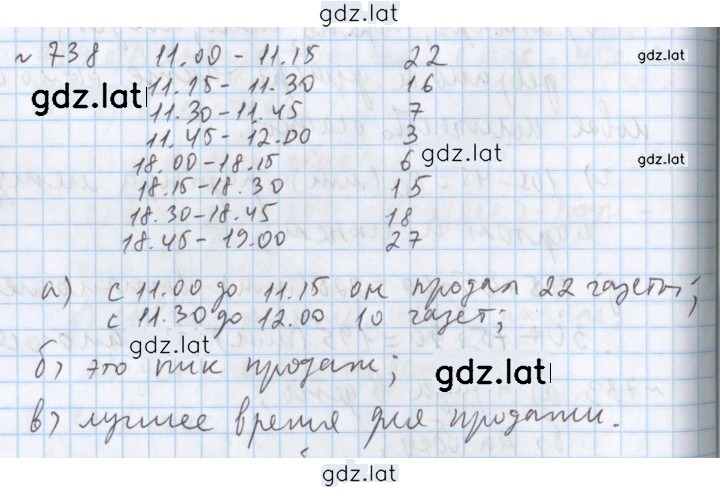 gdz.lat
№ 738 11.00 - 11.15 22
gdz.lat
11.15 - 11.30 16
gdz.lat
11.30 - 11.45 7
11.45 - 12.00 3
gdz.lat
18.00 - 18.15 6
gdz.lat
18.15 - 18.30 15
18.30 - 18.45 18
18.45 - 19.00 27
а) с 11.00 до 11.15 он продал 22 газеты;
с 11.30 до 12.00 10 газет;
gdz.lat
б) это пик продаж;
gdz.lat
в) лучшее время для продажи.
gdz.lat